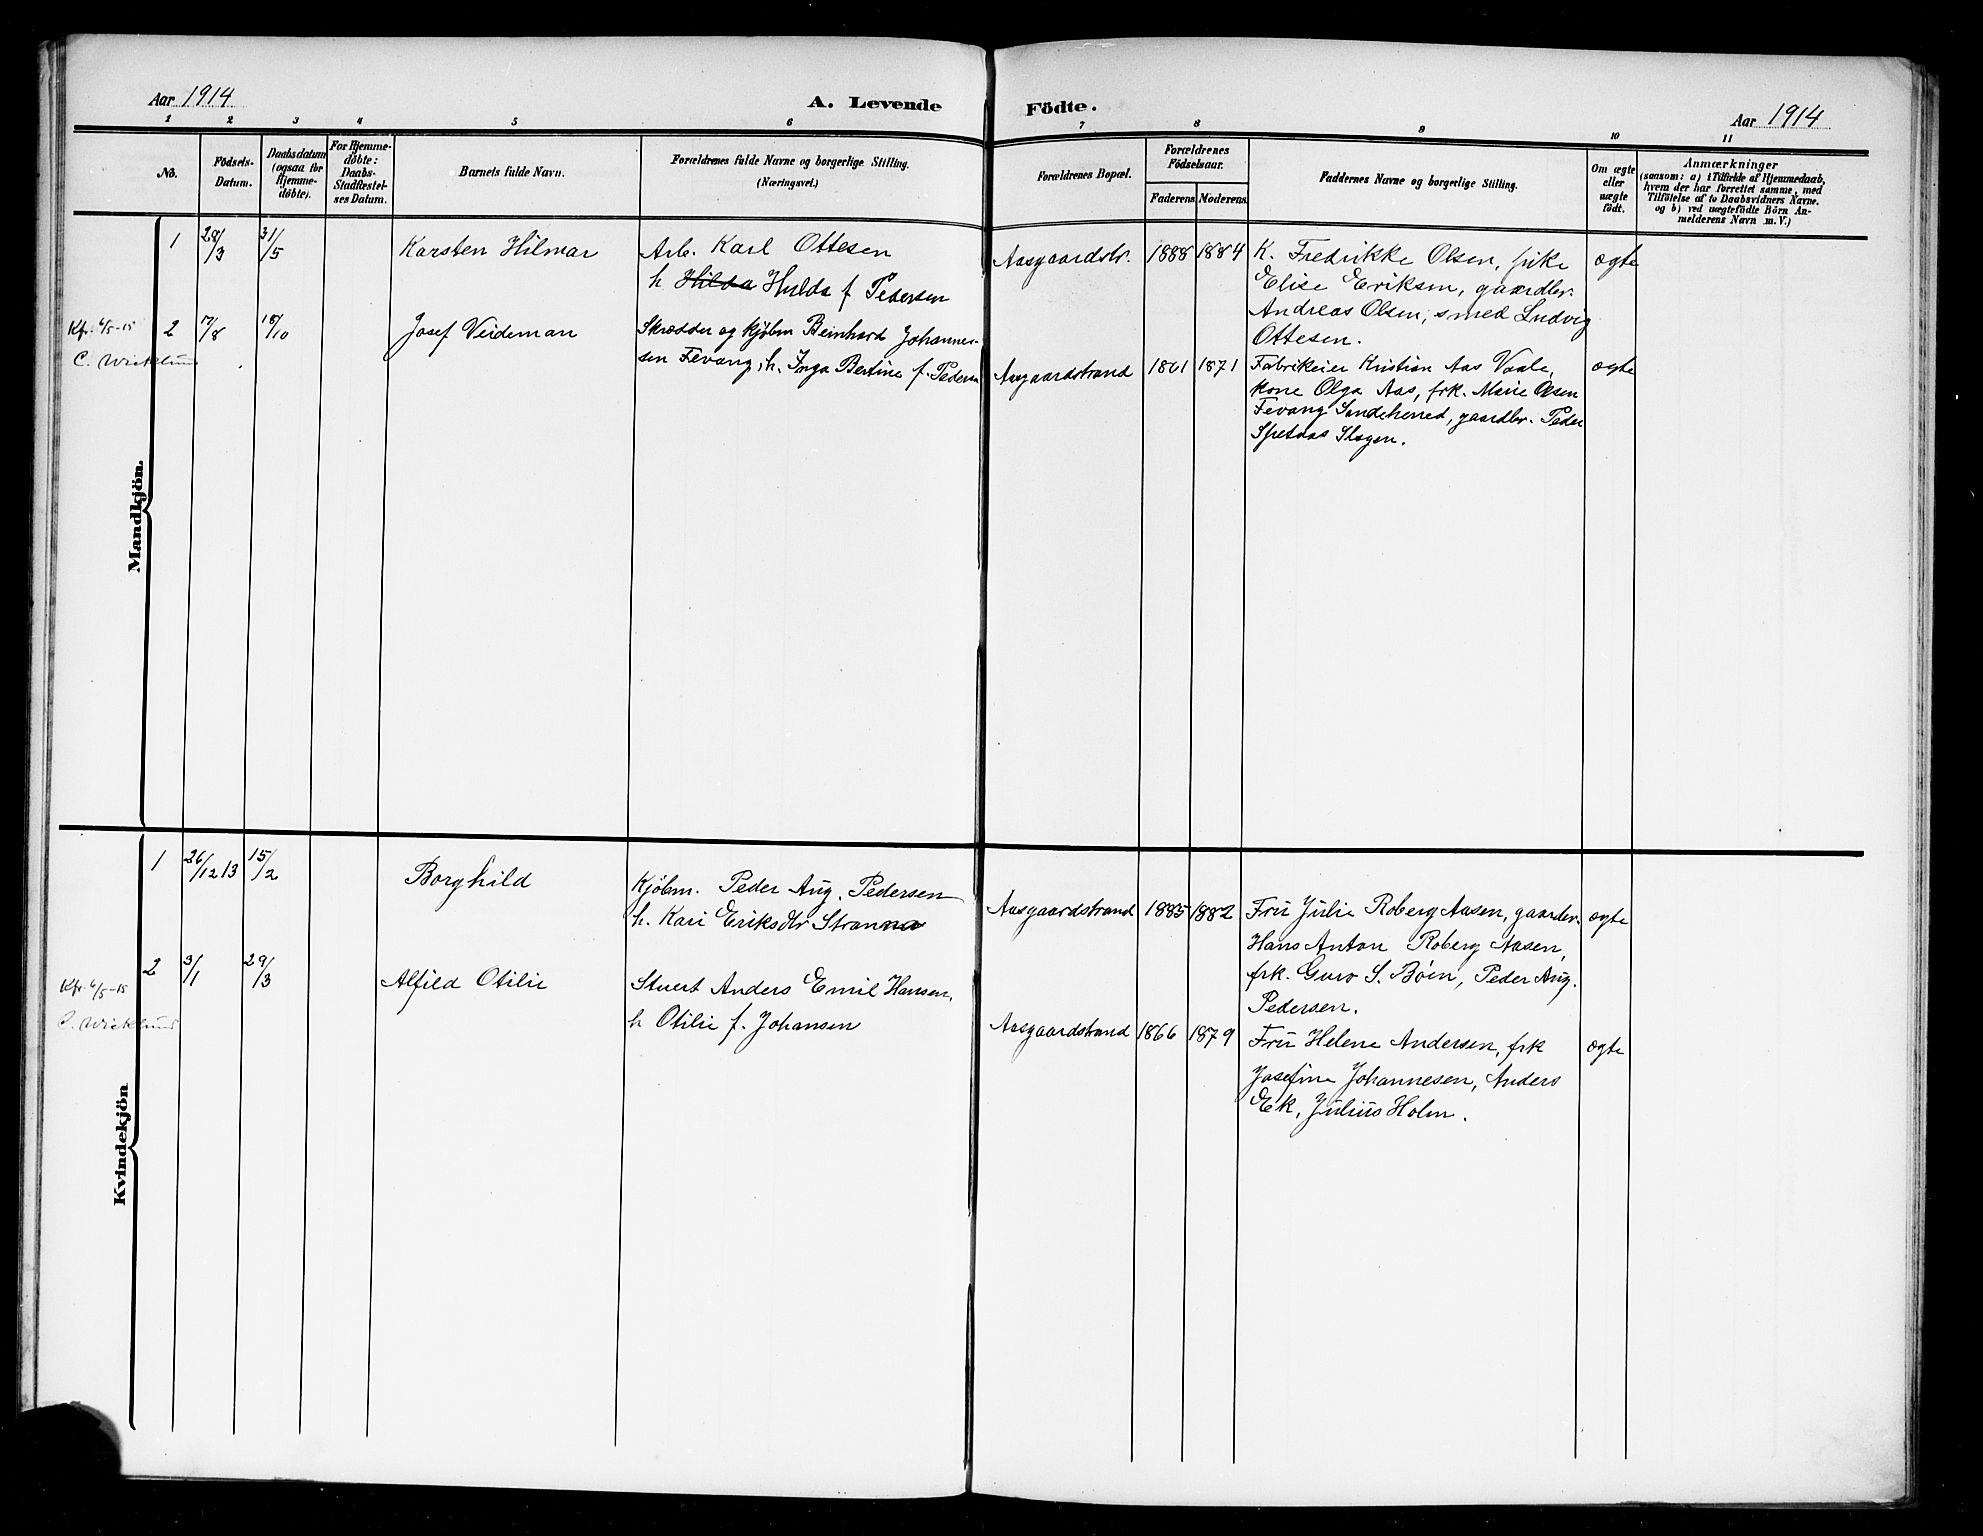 Aar 1914
A. Levende Födte.
Aar 1914
1 2 3 4 5 6 7 8 9 10 11
No.
Födsels-
Datum.
Daabsdatum
(ogsaa for
Hjemme-
döbte).
For Hjemme-
döbte:
Daabs-
Stadfæstel-
ses Datum.
Barnets fulde Navn.
Forældrenes fulde Navne og borgerlige Stilling.
(Næringsvei.)
Forældrenes Bopæl.
Forældrenes
Födselsaar.
Faderens Moderens
Faddernes Navne og borgerlige Stilling.
Om ægte
eller
uægte
født.
Anmærkninger
(saasom: a) i Tilfælde af Hjemmedaab,
hvem der har forrettet samme, med
Tilföielse af to Daabsvidners Navne.
og b) ved uægtefödte Börn An-
melderens Navn m. V.)
Mandkjön.
1 28/3 31/5
Karsten Hilmar
Arb. Karl Ottesen
h Hilda Hulda f Pedersen
Aasgaardstr.
1888 1884
K. Fredrikke Olsen, pike
Elise Eriksen, gaardbr.
Andreas Olsen, smed Ludvig
Ottesen.
ægte
Kfr. 6/5-15
C. Wicklund
2 17/8 18/10
Josef Veideman
Skrædder og kjøbm Beinhard Johannes-
sen Fevang, h. Inga Bertine f. Pedersen
Aasgaardstrand
1861 1871
Fabrikeier Kristian Aas Vaale,
kone Olga Aas, frk. Marie Olsen
Fevang Sandeherred, gaardbr. Peder
Spetaas Slagen.
ægte
Kvindekjön
1 26/12 13 15/2
Borghild
Kjøbm. Peder Aug. Pedersen
h. Kari Eriksdtr Stranna
Aasgaardstrand
1885 1882
Fru Julie Roberg Aasen, gaardbr.
Hans Anton Roberg Aasen,
frk. Guro S. Bøen, Peder Aug.
Pedersen.
ægte
Kfr. 6/5-15
C. Wicklund
2 3/1 29/3
Alfild Otilie
Stuert Anders Emil Hansen,
h Otilie f. Johansen
Aasgaardstrand
1866 1879
Fru Helene Andersen, frk
Josefine Johannesen, Anders
Ek, Julius Holm.
ægte